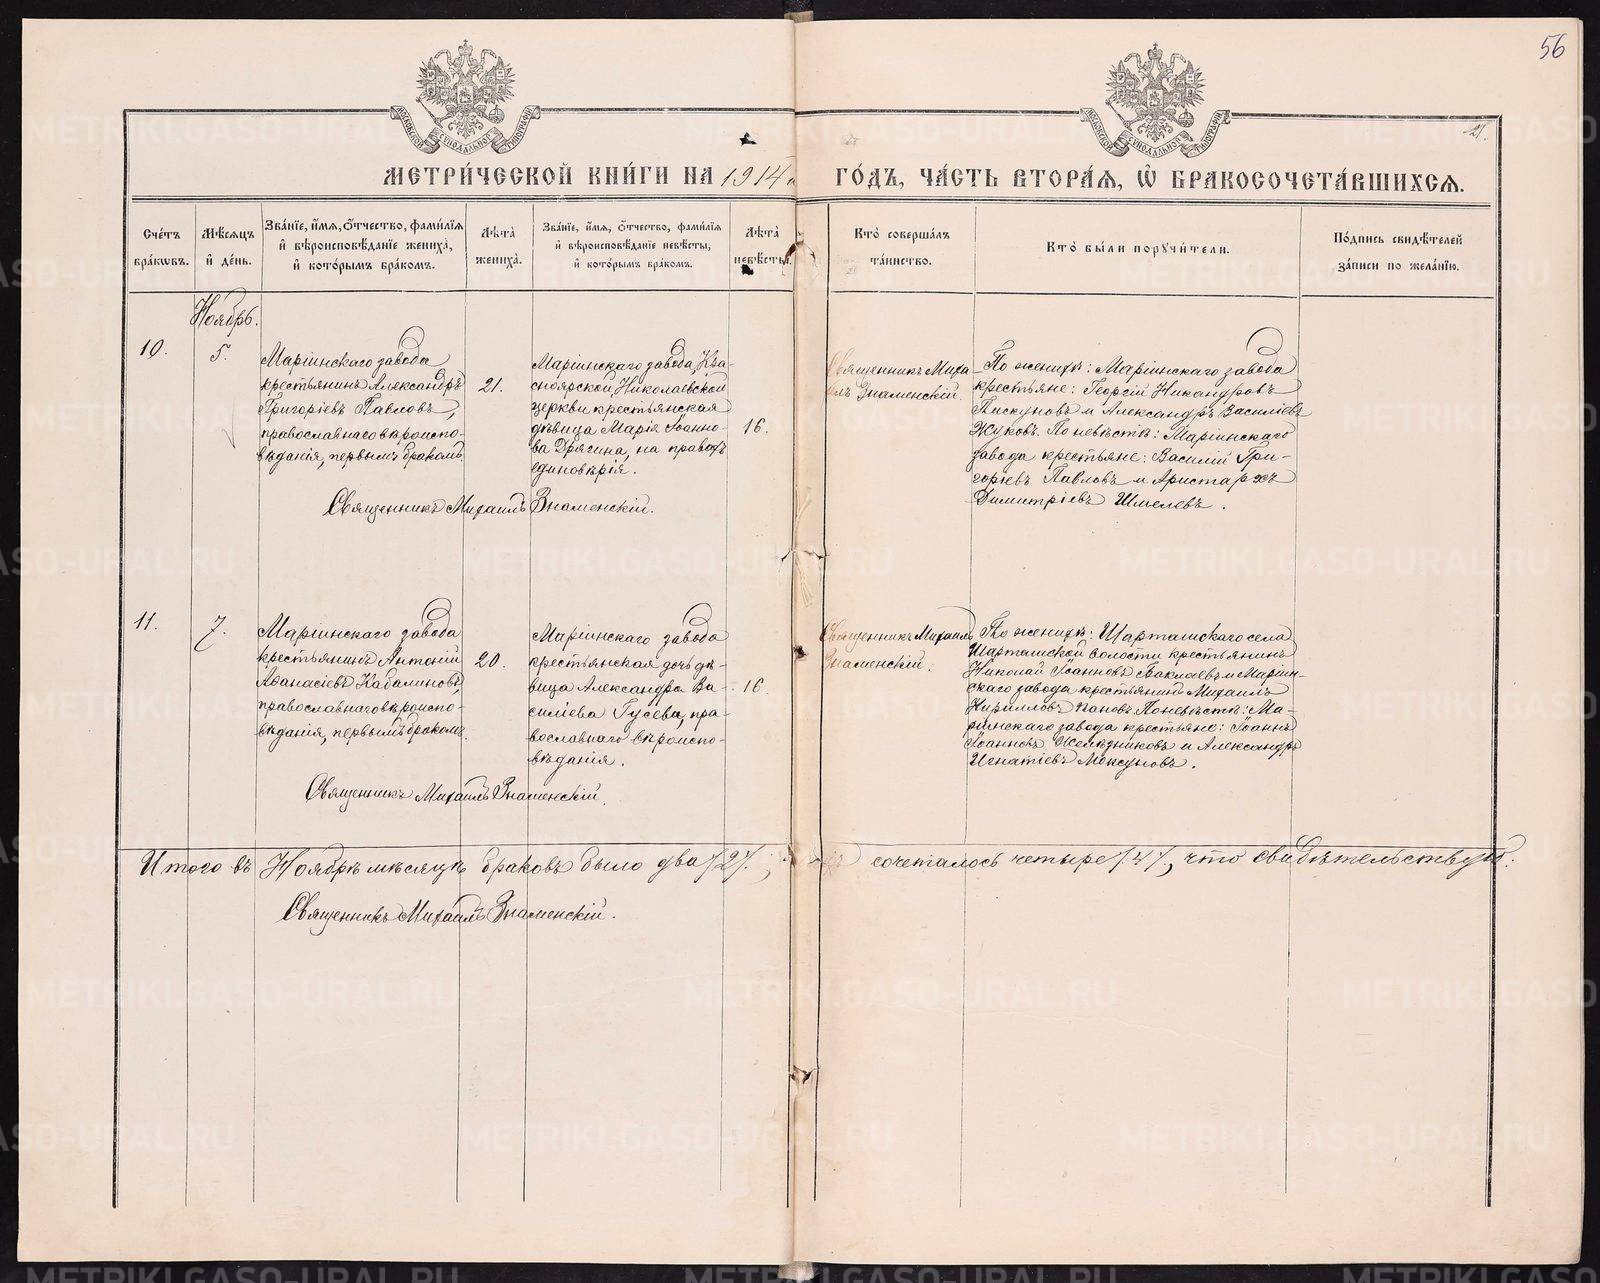 56
21.
МОСКОВСКОЙ СУНОДАЛЬНОЙ ТИПОГРАФІИ
МОСКОВСКОЙ СУНОДАЛЬНОЙ ТИПОГРАФІИ
МЕТРИ́ЧЕСКОЙ КНИ́ГИ НА 1914 ГО́ДЪ, ЧА́СТЬ ВТОРА́Я, Ѡ БРАКОСОЧЕТА́ВШИХСЯ.
Сче́тъ
бра́ковъ.
Мѣ́сяцъ
и҆ де́нь.
Зва́нїе, и҆́мя, ѻ҆́тчество, фами́лїя
и҆ вѣроисповѣ́данїе жениха̀,
и҆ кото́рымъ бра́комъ.
Лѣ́та
жениха̀.
Зва́нїе, и҆́мя, ѻ҆́тчество, фами́лїя
и҆ вѣроисповѣ́данїе невѣ́сты,
и҆ кото́рымъ бра́комъ.
Лѣ́та
невѣ́сты.
Кто̀ соверша́лъ
та́инство.
Кто̀ бы́ли поручи́тели.
По́дпись свидѣ́телей
за́писи по жела́нїю.
Ноябрь.
10.
5.
Маріинскаго завода
крестьянинъ Александръ
Григоріевъ Павловъ,
православнаго вѣроиспо-
вѣданія, первымъ бракомъ.
21.
Маріинскаго завода, Кра-
сноярской, Николаевской
церкви крестьянская
дѣвица Марія Іоанно-
ва Дрягина, на правахъ
единовѣрія.
16.
Священникъ Миха-
илъ Знаменскій.
По женихѣ: Маріинскаго завода
крестьяне: Георгій Никандровъ
Пискуновъ и Александръ Василіевъ
Жуковъ. По невѣстѣ: Маріинскаго
завода крестьяне: Василій Гри-
горіевъ Павловъ и Аристархъ
Димитріевъ Шмелевъ.
Священникъ Михаилъ Знаменскій.
11.
7.
Маріинскаго завода
крестьянинъ Антоній
Аѳанасіевъ Кабалиновъ,
православнаго вѣроиспо-
вѣданія, первымъ бракомъ.
20.
Маріинскаго завода
крестьянская дочь дѣ-
вица Александра Ва-
силіева Гусева, пра-
вославнаго вѣроиспо-
вѣданія.
16.
Священникъ Михаилъ
Знаменскій.
По женихѣ: Шарташскаго села
Шарташской волости крестьянинъ
Николай Іоанновъ Баклаевъ и Маріин-
скаго завода крестьянинъ Михаилъ
Кирилловъ Пановъ. По невѣстѣ: Ма-
ріинскаго завода крестьяне: Іоаннъ
Іоанновъ Желѣзниковъ и Александръ
Игнатіевъ Моксуновъ.
Священникъ Михаилъ Знаменскій.
Итого въ Ноябрѣ мѣсяцѣ браковъ было два /2/; сочеталось четыре /4/, что свидѣтельствую:
Священникъ Михаилъ Знаменскій.
METRIKI.GASO-URAL.RU